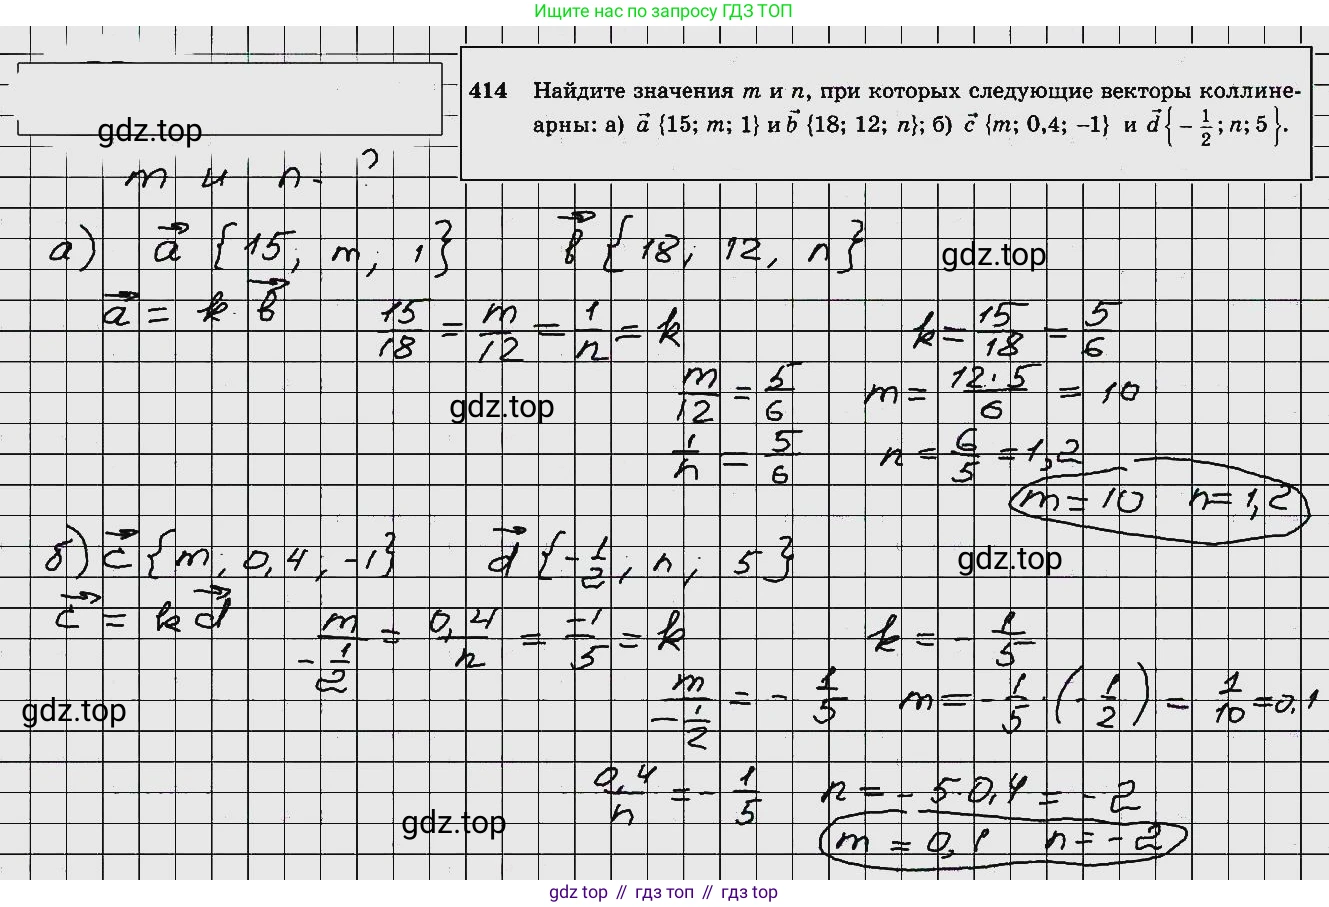 Ищите нас по запросу ГДЗ ТОП
414 Найдите значения m и n, при которых следующие векторы коллине-
арны: а) a⃗ {15; m; 1} и b⃗ {18; 12; n}; б) c⃗ {m; 0,4; −1} и d⃗ {−1/2; n; 5}.
gdz.top
m и n - ?
а) a⃗ {15; m; 1} b⃗ {18; 12, n}
gdz.top
a⃗ = k b⃗ 15/18 = m/12 = 1/n = k k = 15/18 = 5/6
gdz.top
m/12 = 5/6 m = 12·5/6 = 10
1/n = 5/6 n = 6/5 = 1,2
m = 10 n = 1,2
б) c⃗ {m; 0,4; -1} d⃗ {-1/2, n; 5}
gdz.top
c⃗ = k d⃗ m/(-1/2) = 0,4/n = -1/5 = k k = - 1/5
gdz.top
m/(-1/2) = - 1/5 m = - 1/5 · (- 1/2) = 1/10 = 0,1
0,4/n = - 1/5 n = - 5·0,4 = - 2
gdz.top
m = 0,1 n = - 2
gdz top // гдз топ // gdz top